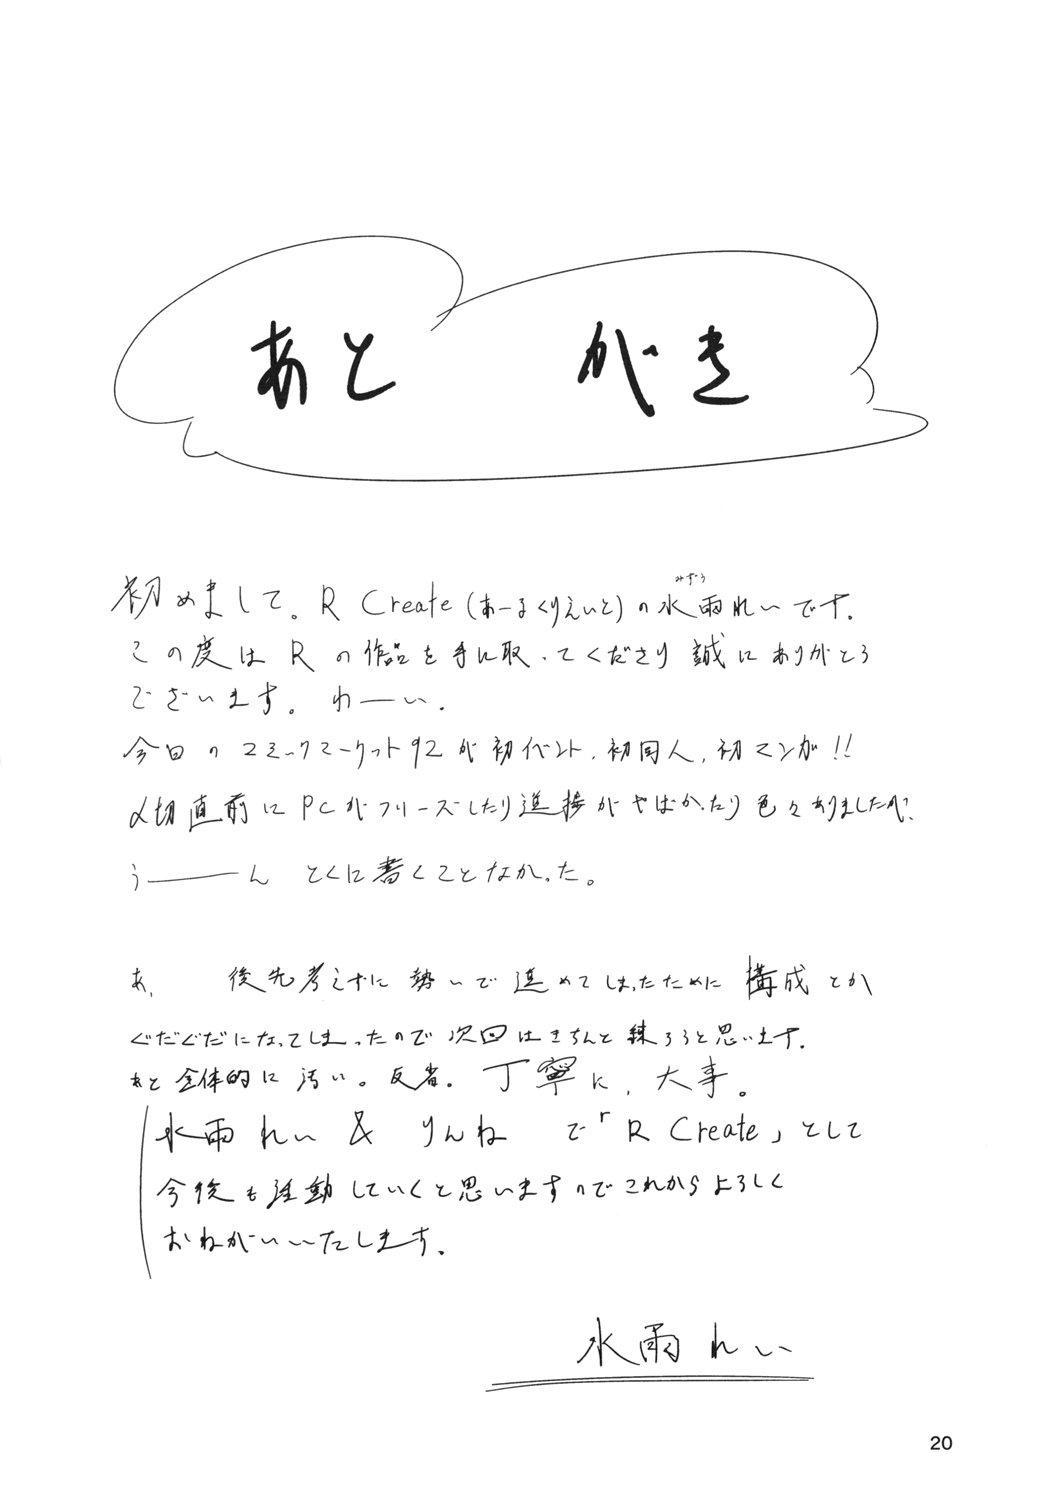 あとがき
初めまして。R Create(あーるくりえいと)の水雨れいです。
みずう
この度はRの作品を手に取ってくださり誠にありがとう
ございます。わーい.
今日のコミックマーケット92が初イベント、初同人、初マンガ!!
〆切直前にPCがフリーズしたり進捗がやばかったり色々ありましたが、
う――――ん とくに書くことなかった。
あ、 後先考えずに勢いで進めてしまったために構成とか
ぐだぐだになってしまったので次回はきちんと練ろうと思います。
あと全体的に汚い。反省。丁寧に、大事。
水雨れい & りんね で「R Create」として
今後も活動していくと思いますのでこれからよろしく
おねがいいたします。
水雨れい
20